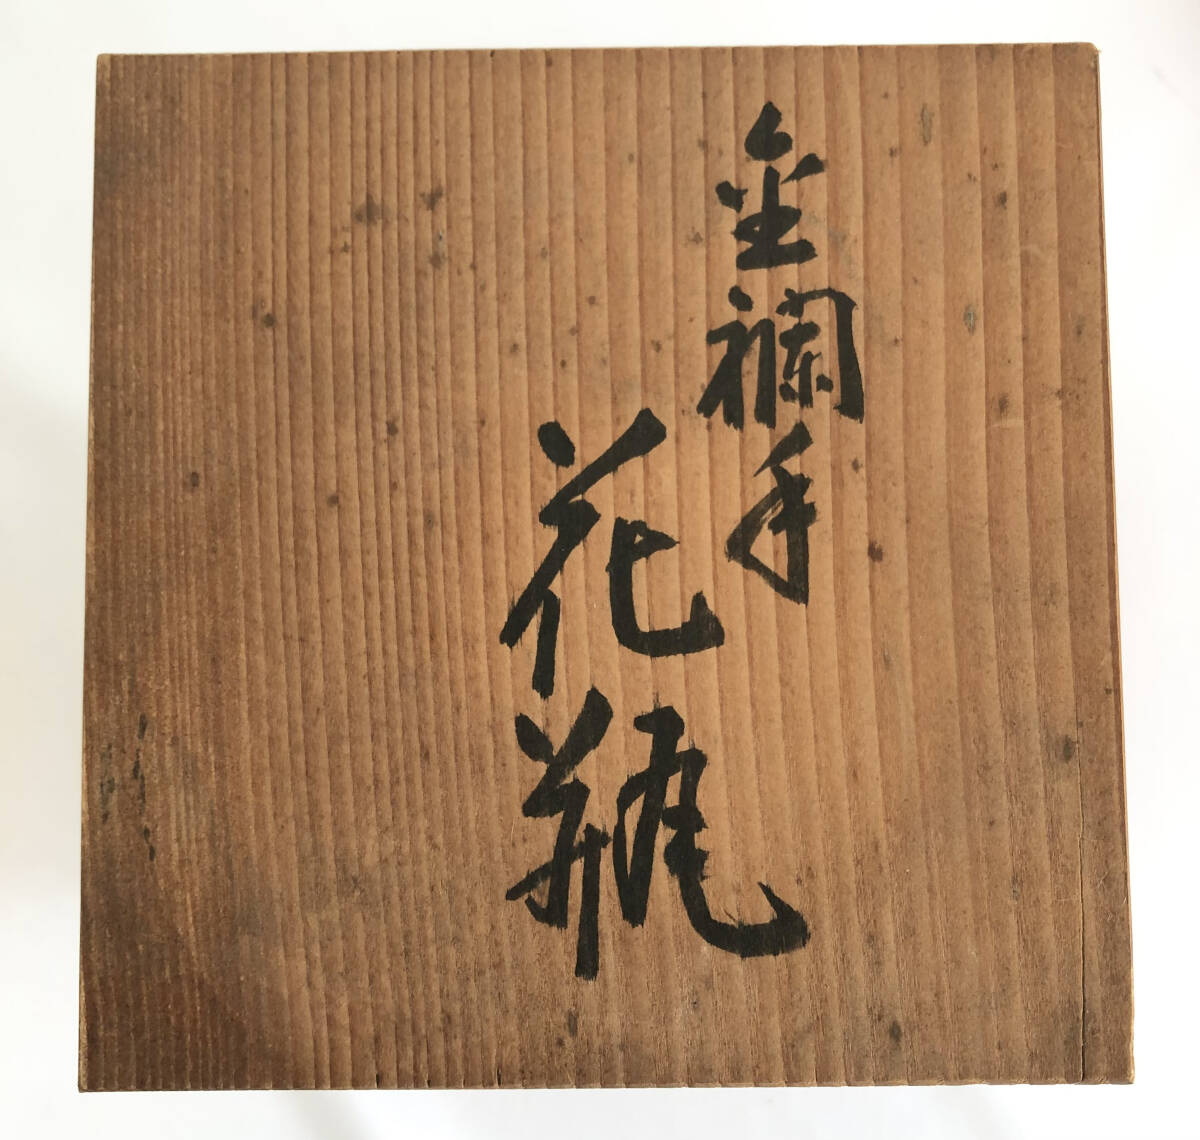 金襴手
花瓶